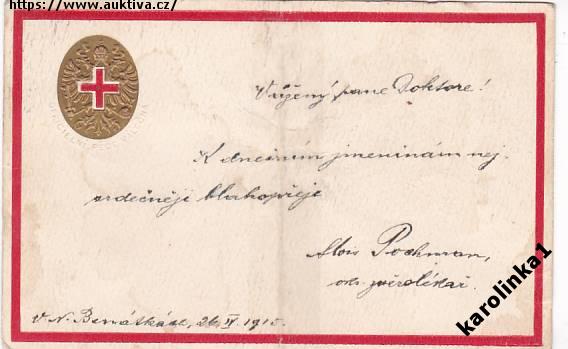 https://www.auktiva.cz/
Vážený pane Doktore!
K dnešním jmeninám nej-
srdečněji blahopřeje
Alois Pochman,
okr. zvěrolékař.
V N. Benátkách, 26. IV. 1915.
karolinka1